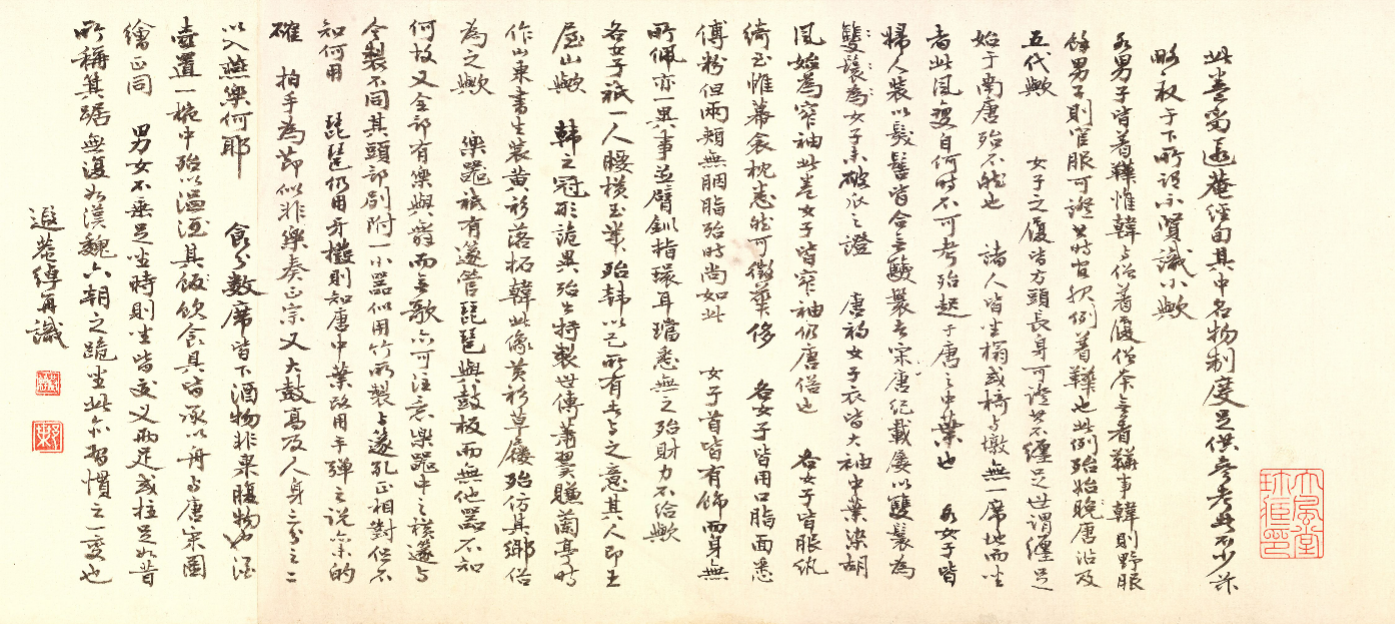 此卷尚經自其中名物制度足供參考者不少茲
略取于下所謂不賢識小歟
各男子皆着鞾惟韓與僧着履僧本無着鞾事韓則野服
餘男子則官服可證其時官服例着鞾也此例殆始晚唐沿及
五代歟 女子之履皆方頭長身可證其不纏足世謂纏足
始于南唐殆不然也 諸人皆坐榻或椅與墩無一席地而坐
者此風變自何時不可考殆起于唐之中葉也 各女子皆
婦人裝以髮髻皆合無鬟者宋唐紀載屢以雙鬟為
雙鬟為女子未破瓜之證 唐初女子衣皆大袖中葉染胡
風始為窄袖此卷女子皆窄袖仍唐俗也 各女子皆服紈
綺至帷幕衾枕悉然可徵華侈 各女子皆用口脂面悉
傅粉但兩頰無胭脂殆時尚如此 女子首皆有飾而身無
所佩亦一異事並臂釧指環耳璫悉無之殆財力不給歟
各女子祇一人腰橫玉帶殆韓以己所有者與之意其人即王
屋山歟 韓之冠形詭異殆出特製世傳蕭翼賺蘭亭時
作山東書生裝黄衫落拓韓此像黄衫草屨殆仿其鄉俗
為之歟 樂器祇有篴管琵琶與鼓板而無他器不知
何故又全部有樂與舞而無歌亦可注意樂器中之橫篴與
今製不同其頭部別附一小器似用竹所製與篴孔正相對但不
知何用 琵琶仍用牙撥則知唐中葉改用手彈之說未的
確 拍手為節似非樂奏正宗又大鼓高及人身三分之二
以入燕樂何耶 食分數席皆下酒物非果腹物也酒
壺置一椀中殆以溫酒其飯飲食具皆承以舟與唐宋圖
繪正同 男女不垂足坐時則坐皆交叉兩足或拄足如昔
所稱箕踞無復如漢魏六朝之跪坐此亦習慣之一變也
遐菴綽再識
大風堂珍藏印